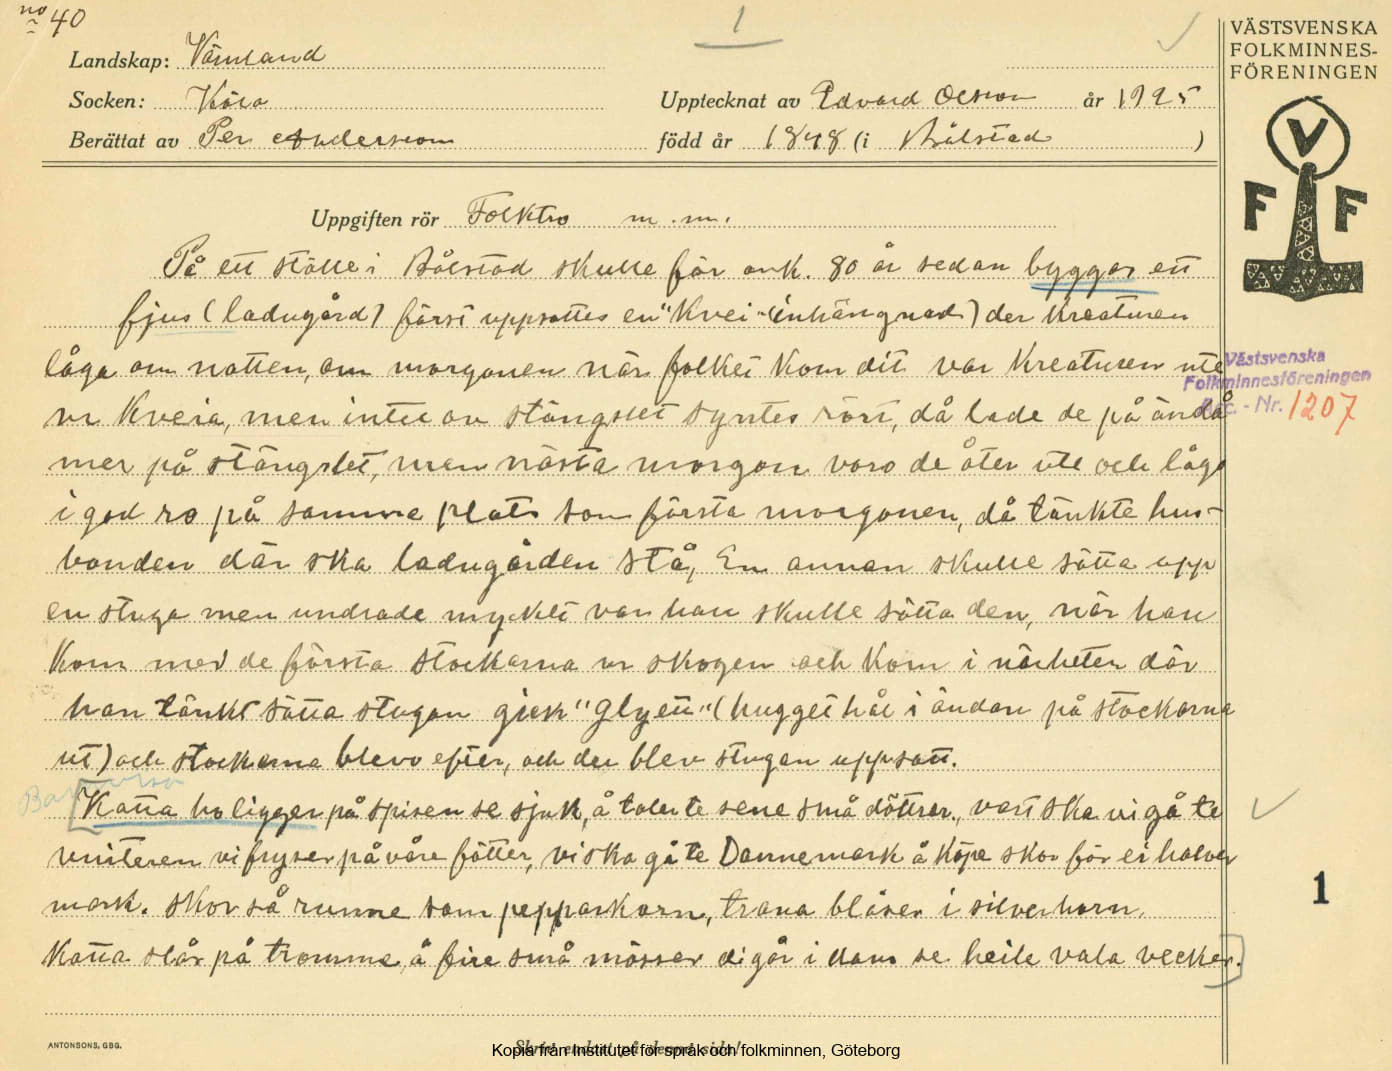 no 40
1
Landskap: Värmland
Socken: Köla
Upptecknat av Edvard Olsson år 1925
Berättat av Per Andersson född år 1848 (i Bålstad )
VÄSTSVENSKA
FOLKMINNES-
FÖRENINGEN
V
F F
Uppgiften rör Folktro m.m.
På ett ställe i Bålstad skulle för ank. 80 år sedan byggas ett
fjus (ladugård) först uppsattes en "Kvei" (inhängnad) der Kreaturen
låga om natten, om morgonen när folket kom dit var Kreaturen ute
ur Kveia, men intet av stängslet syntes rört, då lade de på ändå
mer på stängslet, men nästa morgon voro de åter ute och låga
i god ro på samma plats som första morgonen, då tänkte hus-
bonden där ska ladugården stå, En annan skulle sätta upp
en stuga men undrade mycket var han skulle sätta den, när han
kom med de första stockarna ur skogen och kom i närheten där
han tänkt sätta stugan gick "glyett" (hugget hål i ändan på stockarna
ut) och stockarna blevo efter, och der blev stugan uppsatt.
Katta ho ligger på spisen se sjuk, å taler te sene små döttrer, vart ska vi gå te
vinteren vi fryser på våre fötter, vi ska gå te Dannemark å köpe skor för ei halver
mark. skor så runne som pepparkorn, trana blåser i silverhorn,
Katta slår på tromma, å fire små mösser di går i dans se heile vala vecker.
Västsvenska
Folkminnesföreningen
Acc. - Nr. 1207
1
ANTONSONS, GBG.
Skriv endast på denna sida!
Kopia från Institutet för språk och folkminnen, Göteborg